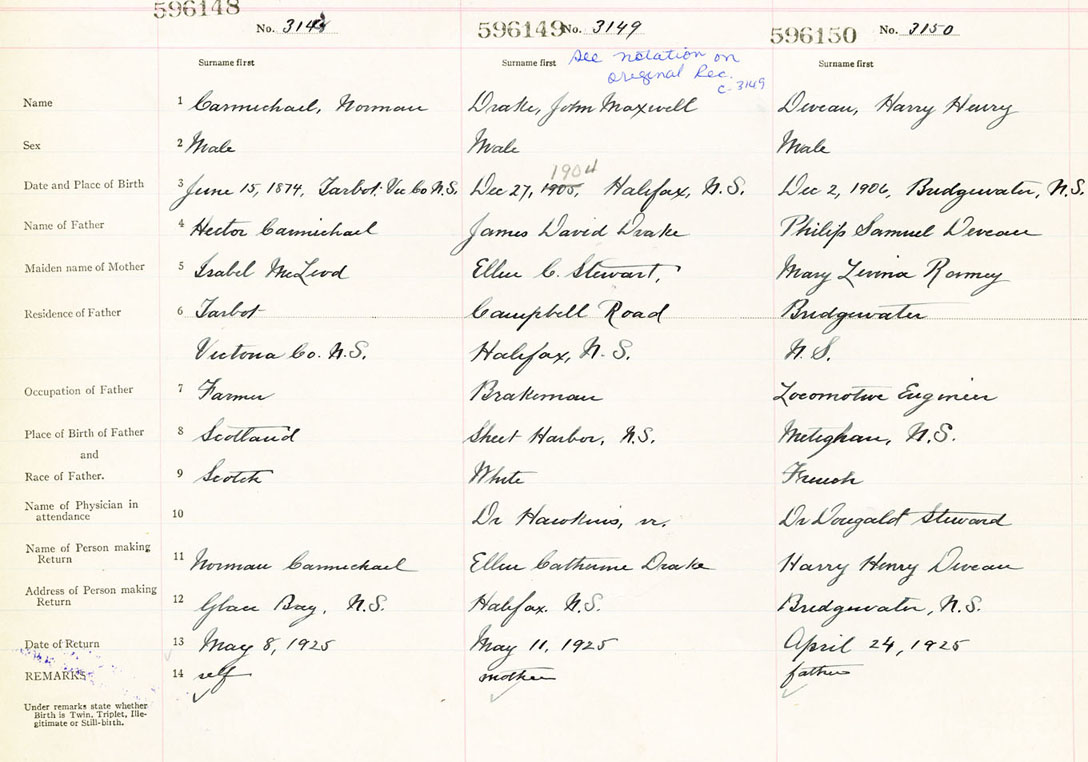 596148 596149 596150
No. 3148 No. 3149 No. 3150
See notation on
original Rec.
C-3149
Surname first Surname first Surname first
Name 1 Carmichael, Norman Drake, John Maxwell Deveau, Harry Henry
Sex 2 Male Male Male
1904
Date and Place of Birth 3 June 15, 1874, Tarbot. Vic Co N.S. Dec 27, 1905, Halifax, N.S. Dec 2, 1906, Bridgewater, N.S.
Name of Father 4 Hector Carmichael James David Drake Philip Samuel Deveau
Maiden name of Mother 5 Isabel McLeod Ellen C. Stewart, Mary Romney
Residence of Father 6 Tarbot Campbell Road Bridgewater
Victoria Co. N.S. Halifax, N.S. N.S.
Occupation of Father 7 Farmer Brakeman Locomotive Engineer
Place of Birth of Father 8 Scotland Sheet Harbor, N.S. Meteghan, N.S.
and
Race of Father. 9 Scotch White French
Name of Physician in
attendance 10 Dr Hawkins, Dr Dougald Steward
Name of Person making
Return 11 Norman Carmichael Ellen Catherine Drake Harry Henry Deveau
Address of Person making
Return 12 Glace Bay, N.S. Halifax. N.S. Bridgewater, N.S.
Date of Return 13 May 8, 1925 May 11, 1925 April 24, 1925
REMARKS 14 self mother father
Under remarks state whether
Birth is Twin, Triplet, Ille-
gitimate or Still-birth.